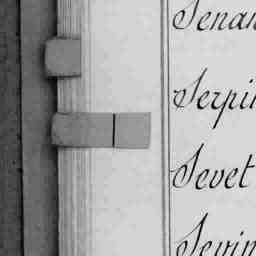 Senan
Serpi
Sevet
Sevin